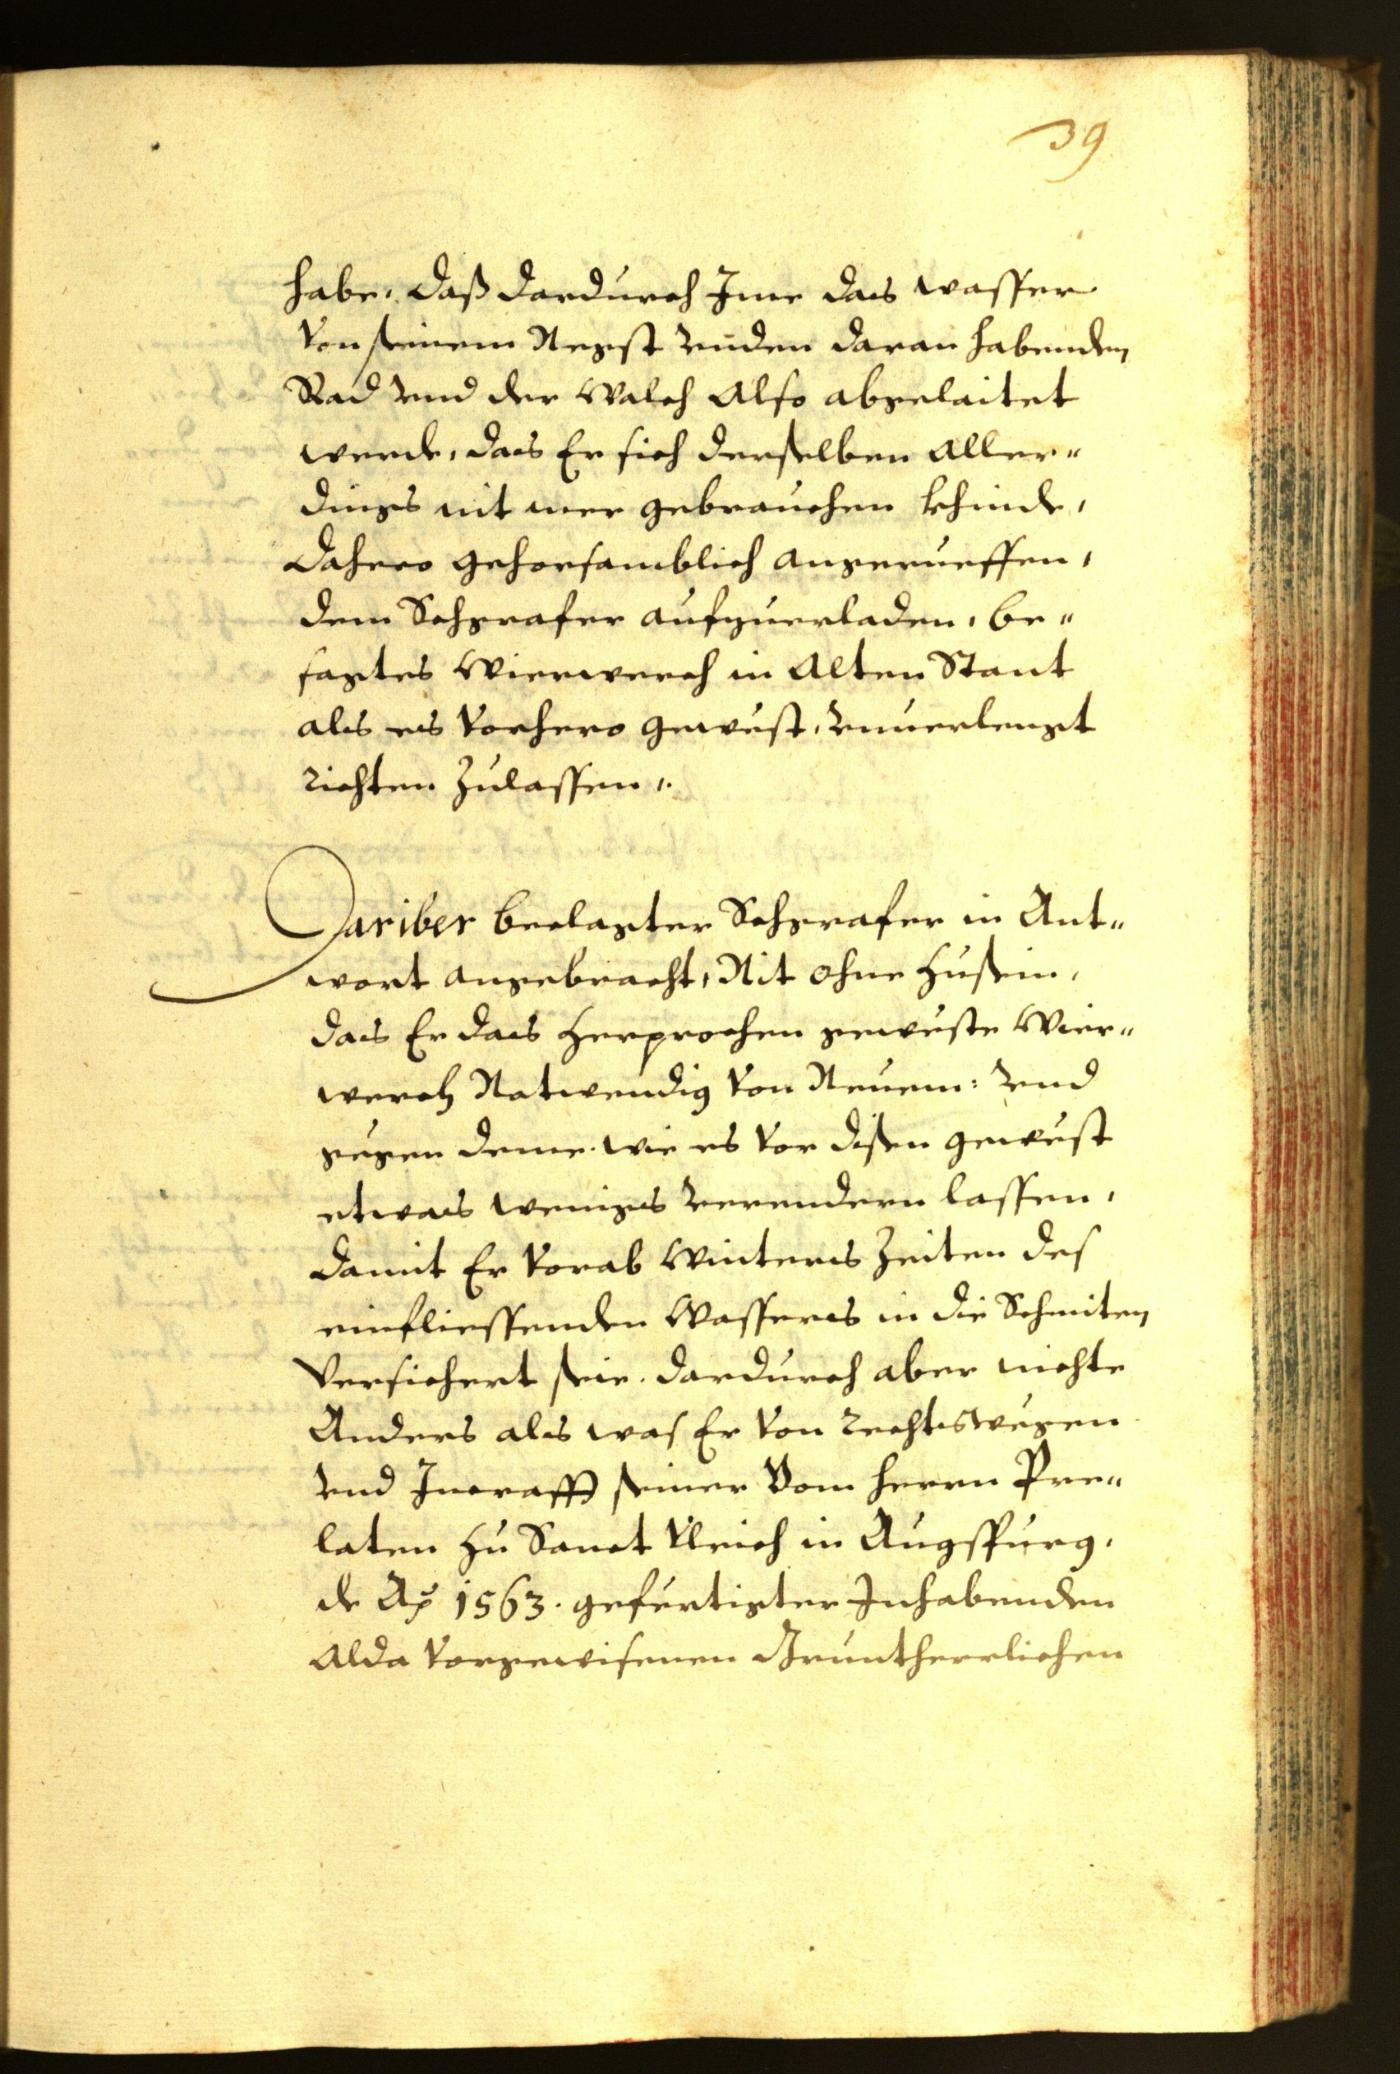 39
habe, daß dardurch Ime das wasser
von seinem Negst unden daran habenden
Rad und der Walch Also abgelaitet
werde, das Er sich derselben Aller-
dings nit mer gebrauchen khinde,
Dahero gehorsamblich angerueffen,
dem Schgrafer aufzuerladen, be-
sagtes Wierwerch in Alten Stant
als es vorhero gewest, unuerlengt
richten Zulassen.
Dariber beclagter Schgrafer in Ant-
wort angebracht, Nit ohne zusein,
das Er das zerprochen geweste Wier-
werch Notwendig von Neuem: und
gegen deme wie es vor disen gewest
etwas weniges verendern lassen,
damit Er vorab Winters Zeiten des
einfliessenden Wassers in die Schmiten
versichert seie. dardurch aber nichts
Anders als was Er von rechtswegen
und Incrafft seiner Vom herrn Pre-
laten zu Sanct Ulrich in Augspurg,
de Ao 1563. gefertigter Inhabenden
Alda vorgewisenen Gruntherrlichen